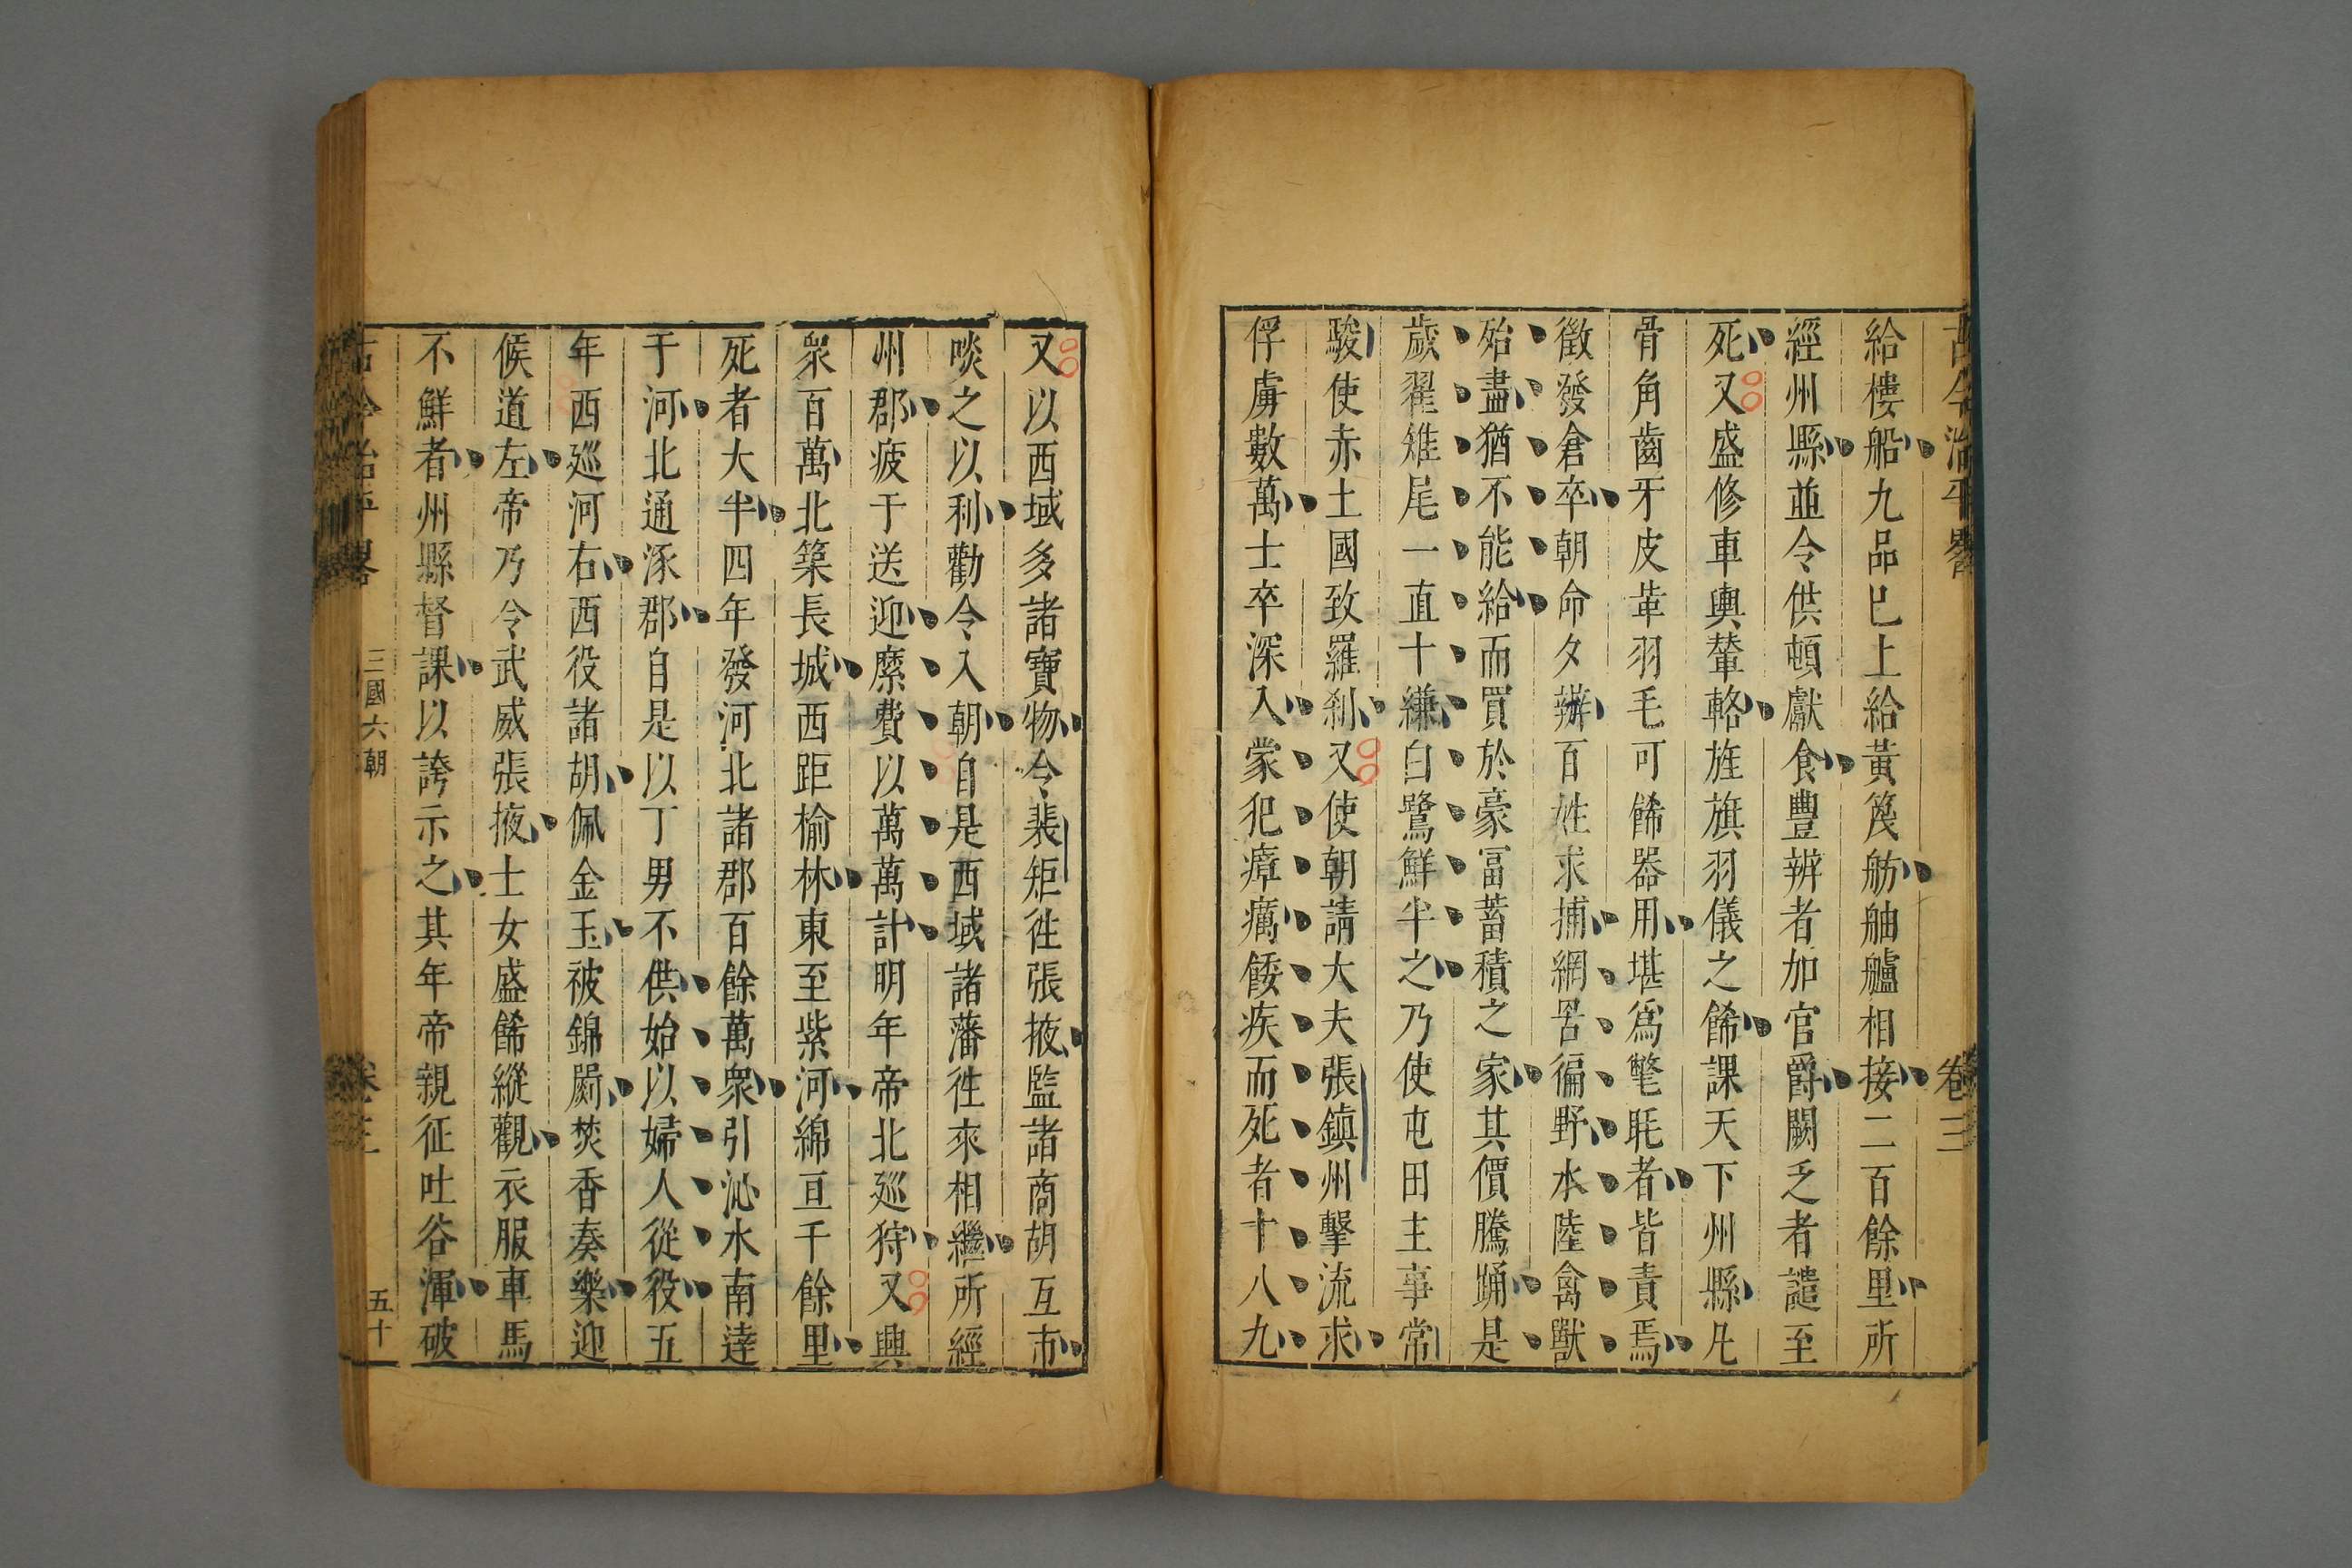 古今治平畧 卷三
給樓船九品已上給黃篾舫舳艫相接二百餘里所
經州縣並令供頓獻食豐辨者加官爵闕乏者譴至
死又盛修車輿輦輅旌旗羽儀之餙課天下州縣凡
骨角齒牙皮革羽毛可餙器用堪爲氅毦者皆責焉
徵發倉卒朝命夕辦百姓求捕網罟徧野水陸禽獸
殆盡猶不能給而買於豪冨蓄積之家其價騰踊是
歲翟雉尾一直十縑白鷺鮮半之乃使屯田主事常
駿使赤土國致羅刹又使朝請大夫張鎮州擊流求
俘虜數萬士卒深入蒙犯瘴癘餧疾而死者十八九
又以西域多諸寶物令裴矩徃張掖監諸商胡互市
啖之以利勸令入朝自是西域諸藩徃來相繼所經
州郡疲于送迎縻費以萬萬計明年帝北廵狩又興
衆百萬北築長城西距榆林東至紫河綿亘千餘里
死者大半四年發河北諸郡百餘萬衆引沁水南達
于河北通涿郡自是以丁男不供始以婦人從役五
年西廵河右西役諸胡佩金玉被錦罽焚香奏樂迎
候道左帝乃令武威張掖士女盛餙縱觀衣服車馬
不鮮者州縣督課以誇示之其年帝親征吐谷渾破
古今治平畧 三國六朝 卷三 五十